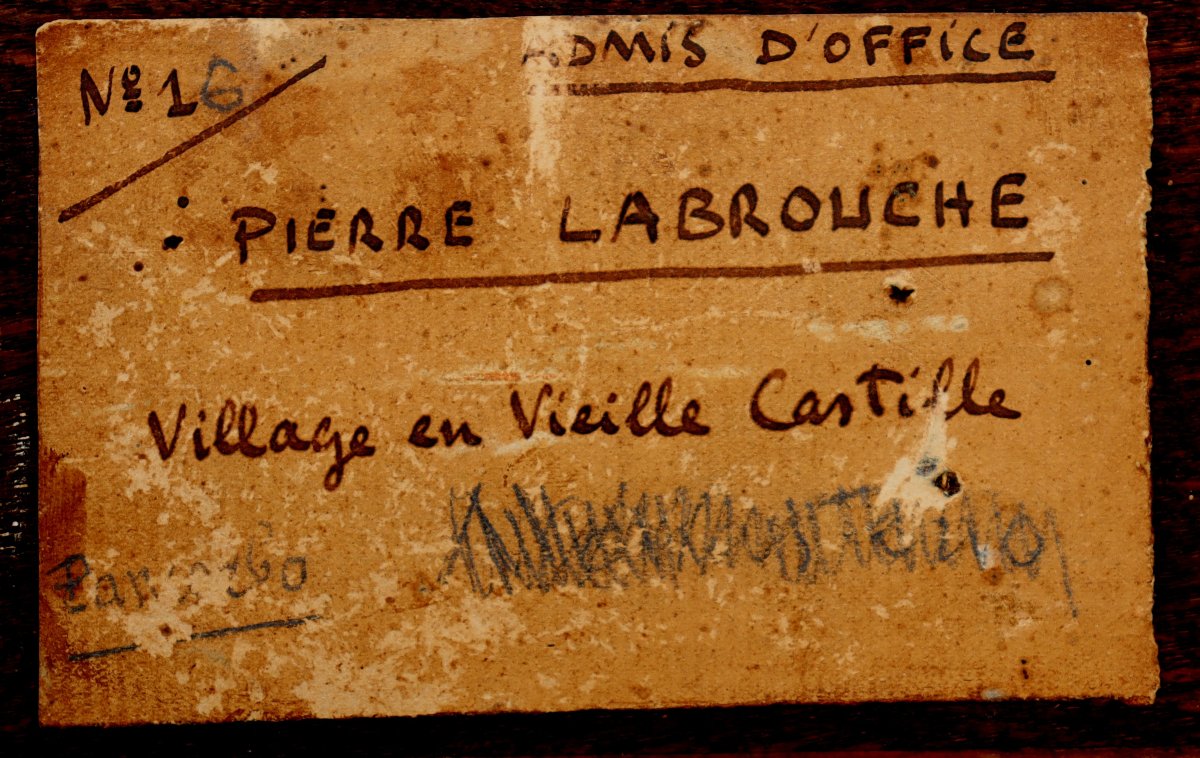 Nº 16
ADMIS D'OFFICE
PIERRE LABROUCHE
Village en Vieille Castille